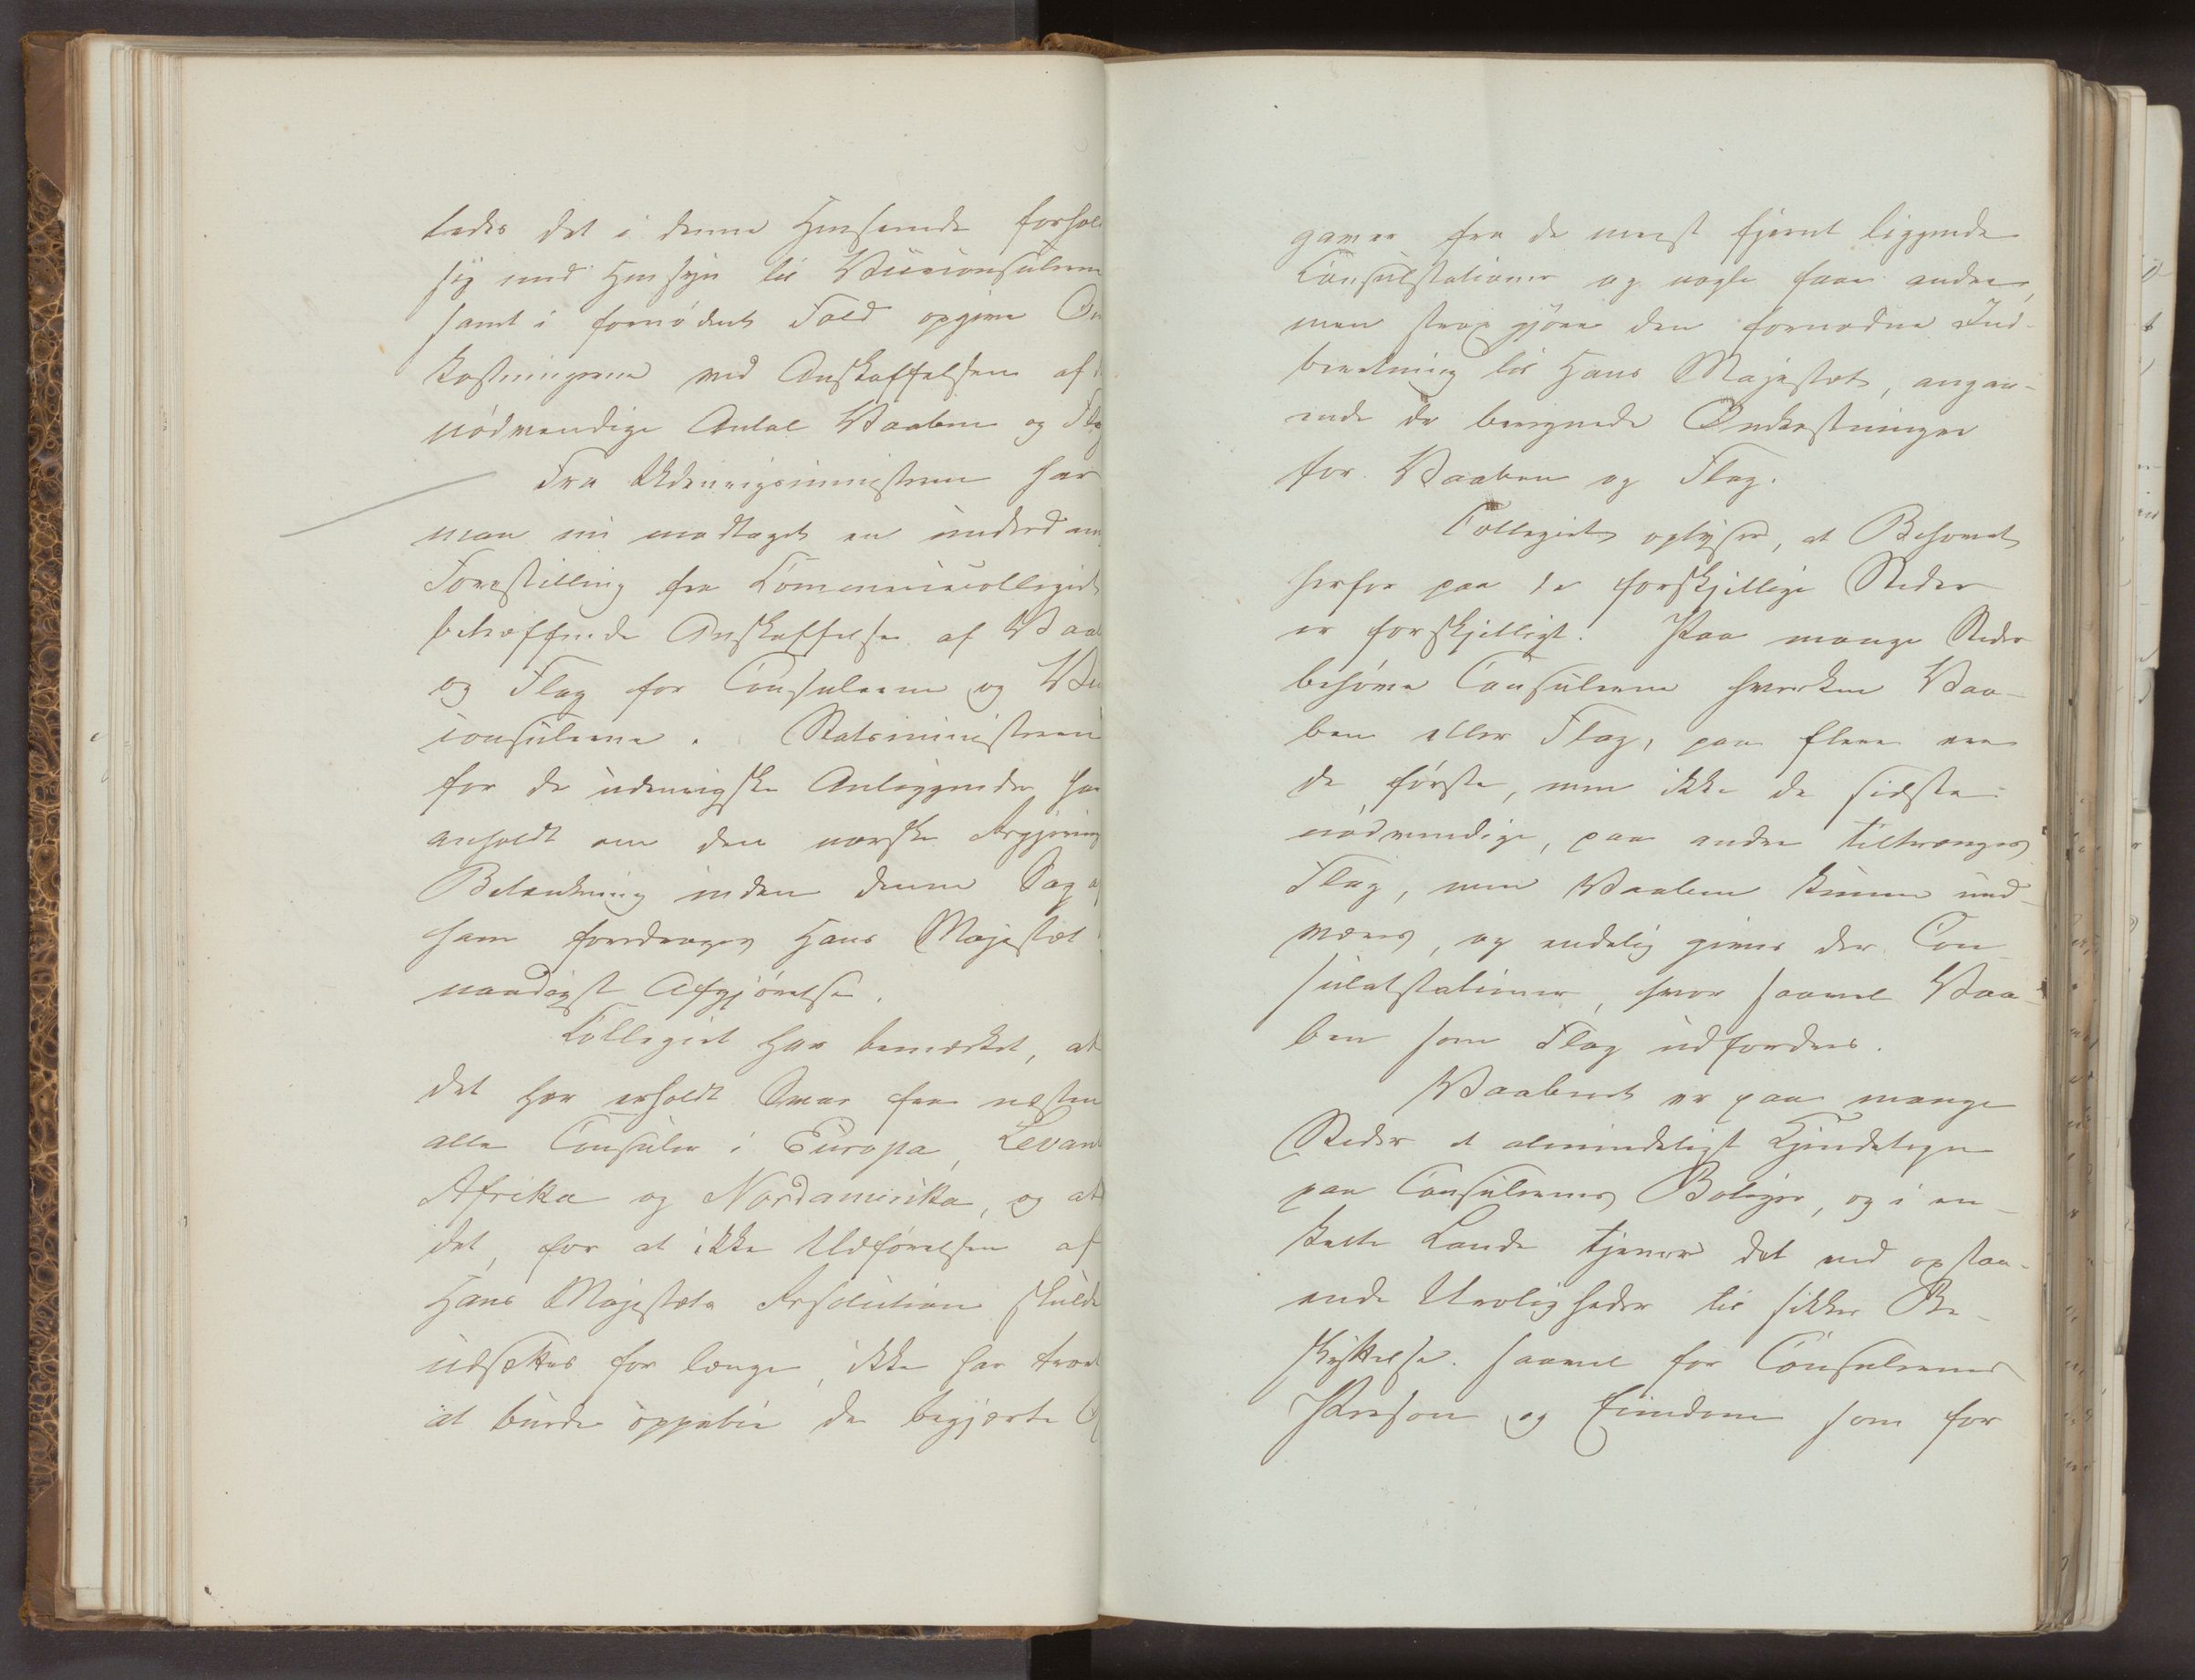 ledes det i denne Henseende forhol
sig med Hensyn til Viceconsulerne
samt i fornødent Fald opgive On
kostningerne ved Anskaffelsen af
nödvendige Antal Vaaben og Fla
Fra Udenrigsministeren har
man nu modtaget en underd
Forestilling fra Commercecollegiet
betræffende Anskaffelse af Vaa
og Flag for Consulerne og Vice
consulerne. Statsministeren
for de udenrigske Anliggender har
anholdt om den norske Regjerings
Betænkning inden denne Sag
ham foredrages Hans Majestæt
naadigst Afgjörelse.
Collegiet har bemærket, at
det har erholdt Svar fra næsten
alle Consuler i Europa, Levant
Afrika og Nordamerika, og at
det, for at ikke Udförelsen af
Hans Majestæts Resolution skulde
udsættes for længe, ikke har troet
at burde oppebie de begjærte
gaver fra de meest fjernt liggende
Consulstationer og nogle faa andre,
men strax gjöre den fornødne Ind-
beretning til Hans Majestæt, angaa-
ende de beregnede Omkostninger
for Vaaben og Flag.
Collegiet oplyser, at Behovet
herfor paa de forskjellige Steder
er forskjelligt. Paa mange Steder
behöve Consulerne hverken Vaa-
ben eller Flag, paa flere ere
de förste, men ikke de sidste
nödvendige, paa andre tiltrænges
Flag, men Vaaben kunne und-
væres, og endelig gives der Con
sulatstationer, hvor saavel Vaa-
ben som Flag udfordres.
Vaabnet er paa mange
Steder et almindeligt Kjendetegn
paa Consulernes Boliger, og i en-
kelte Lande tjener det ved opstaa-
ende Uroligheder til sikker Be-
skyttelse saavel for Consulernes
Person og Eiendom som for